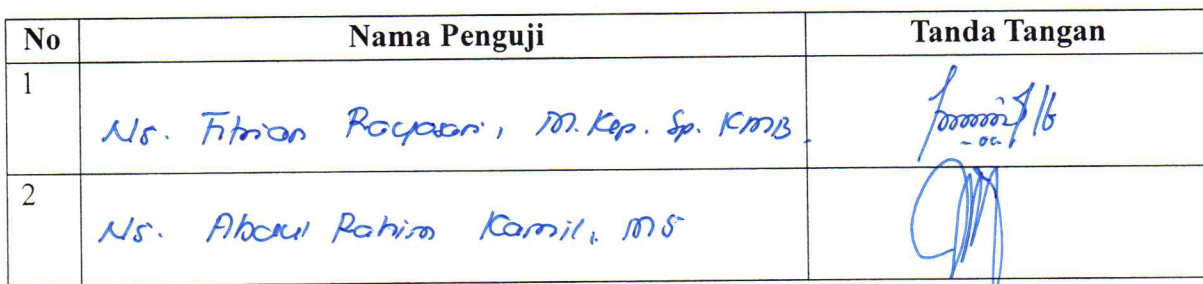 No Nama Penguji Tanda Tangan
1
Ns. Fitrian Rayasari, M.Kep. Sp. KMB.
2
Ns. Abdul Rahim Kamil, MS